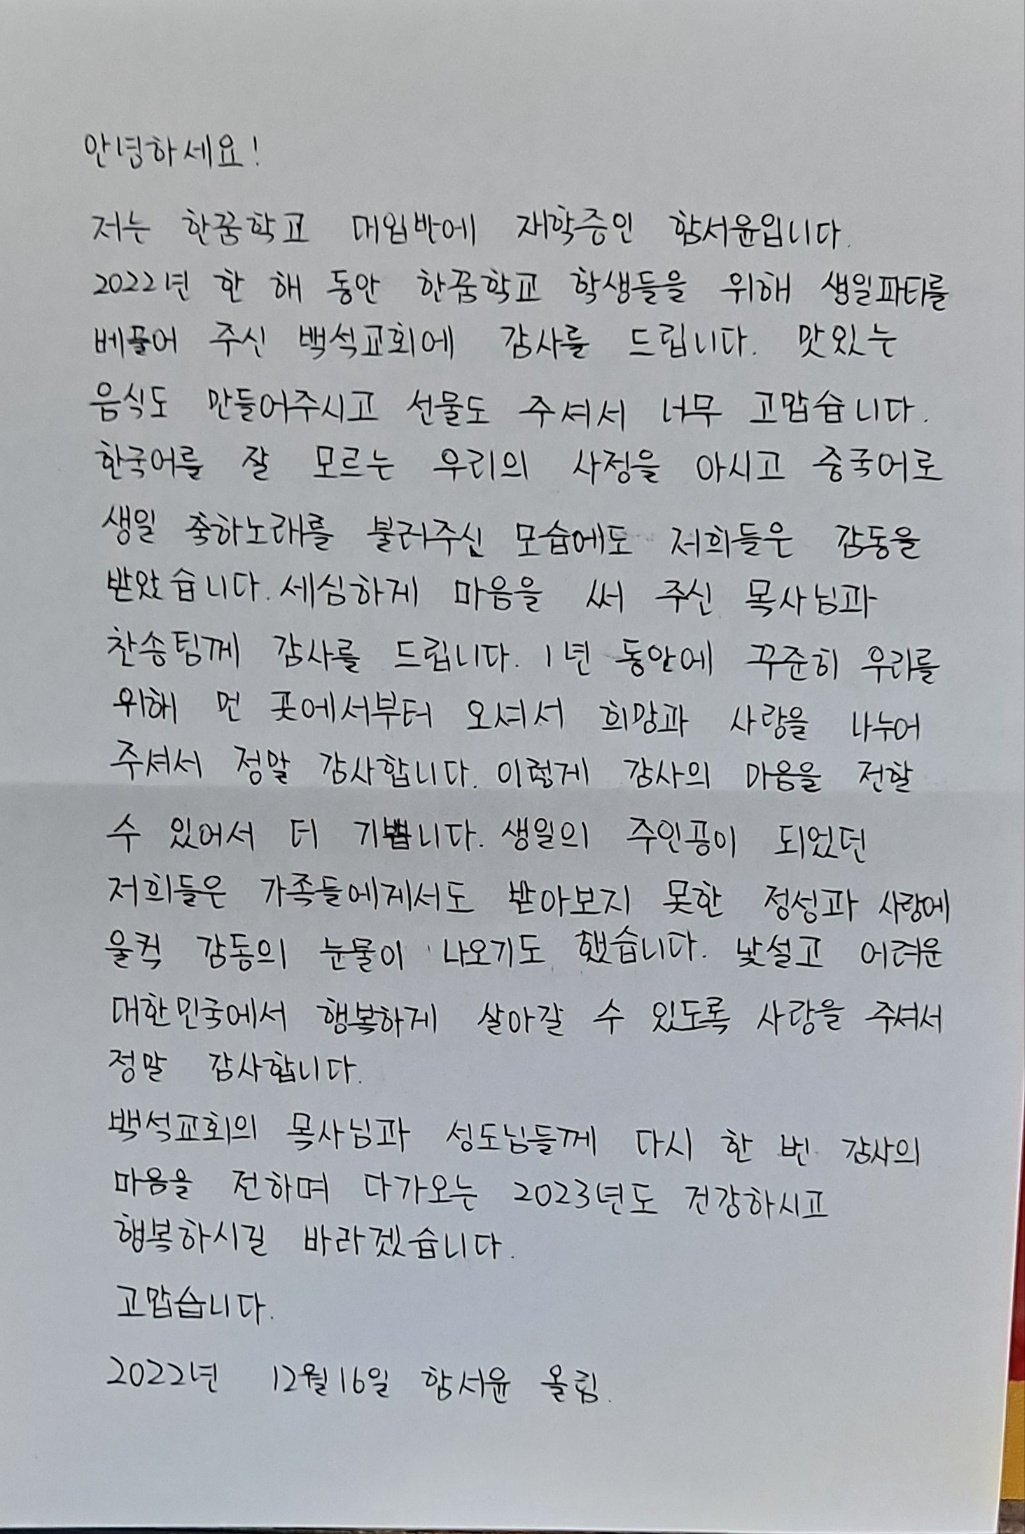 안녕하세요!
저는 한꿈학교 대입반에 재학중인 함서윤입니다.
2022년 한 해 동안 한꿈학교 학생들을 위해 생일파티를
베풀어 주신 백석교회에 감사를 드립니다. 맛있는
음식도 만들어주시고 선물도 주셔서 너무 고맙습니다.
한국어를 잘 모르는 우리의 사정을 아시고 중국어로
생일 축하노래를 불러주신 모습에도 저희들은 감동을
받았습니다. 세심하게 마음을 써 주신 목사님과
찬송팀께 감사를 드립니다. 1년 동안에 꾸준히 우리를
위해 먼 곳에서부터 오셔서 희망과 사랑을 나누어
주셔서 정말 감사합니다. 이렇게 감사의 마음을 전할
수 있어서 더 기쁩니다. 생일의 주인공이 되었던
저희들은 가족들에게서도 받아보지 못한 정성과 사랑에
울컥 감동의 눈물이 나오기도 했습니다. 낯설고 어려운
대한민국에서 행복하게 살아갈 수 있도록 사랑을 주셔서
정말 감사합니다.
백석교회의 목사님과 성도님들께 다시 한 번 감사의
마음을 전하며 다가오는 2023년도 건강하시고
행복하시길 바라겠습니다.
고맙습니다.
2022년 12월 16일 함서윤 올림.